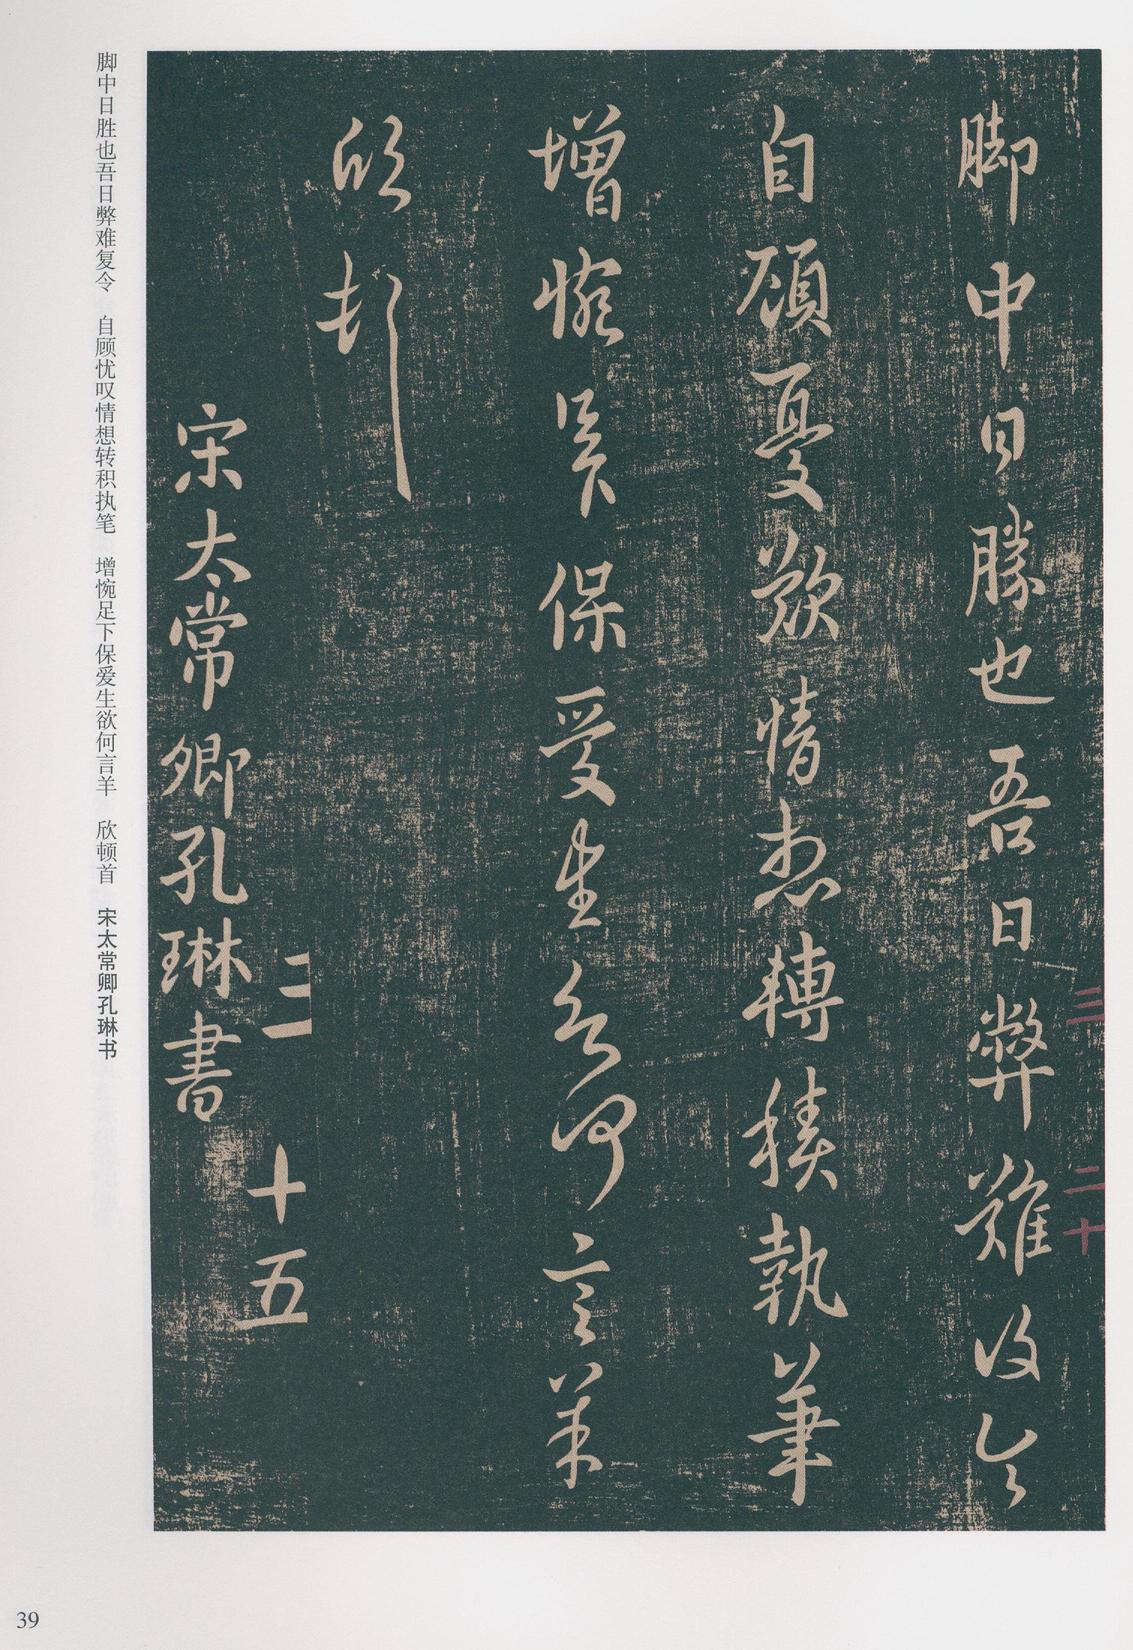 脚中日勝也吾日弊難復令
自顧憂歎情想轉積執筆
增惋足下保愛生欲何言羊
欣頓首
宋太常卿孔琳書
三 十五
三 二十
脚中日胜也吾日弊难复令 自顾忧叹情想转积执笔 增惋足下保爱生欲何言羊 欣顿首 宋太常卿孔琳书
39